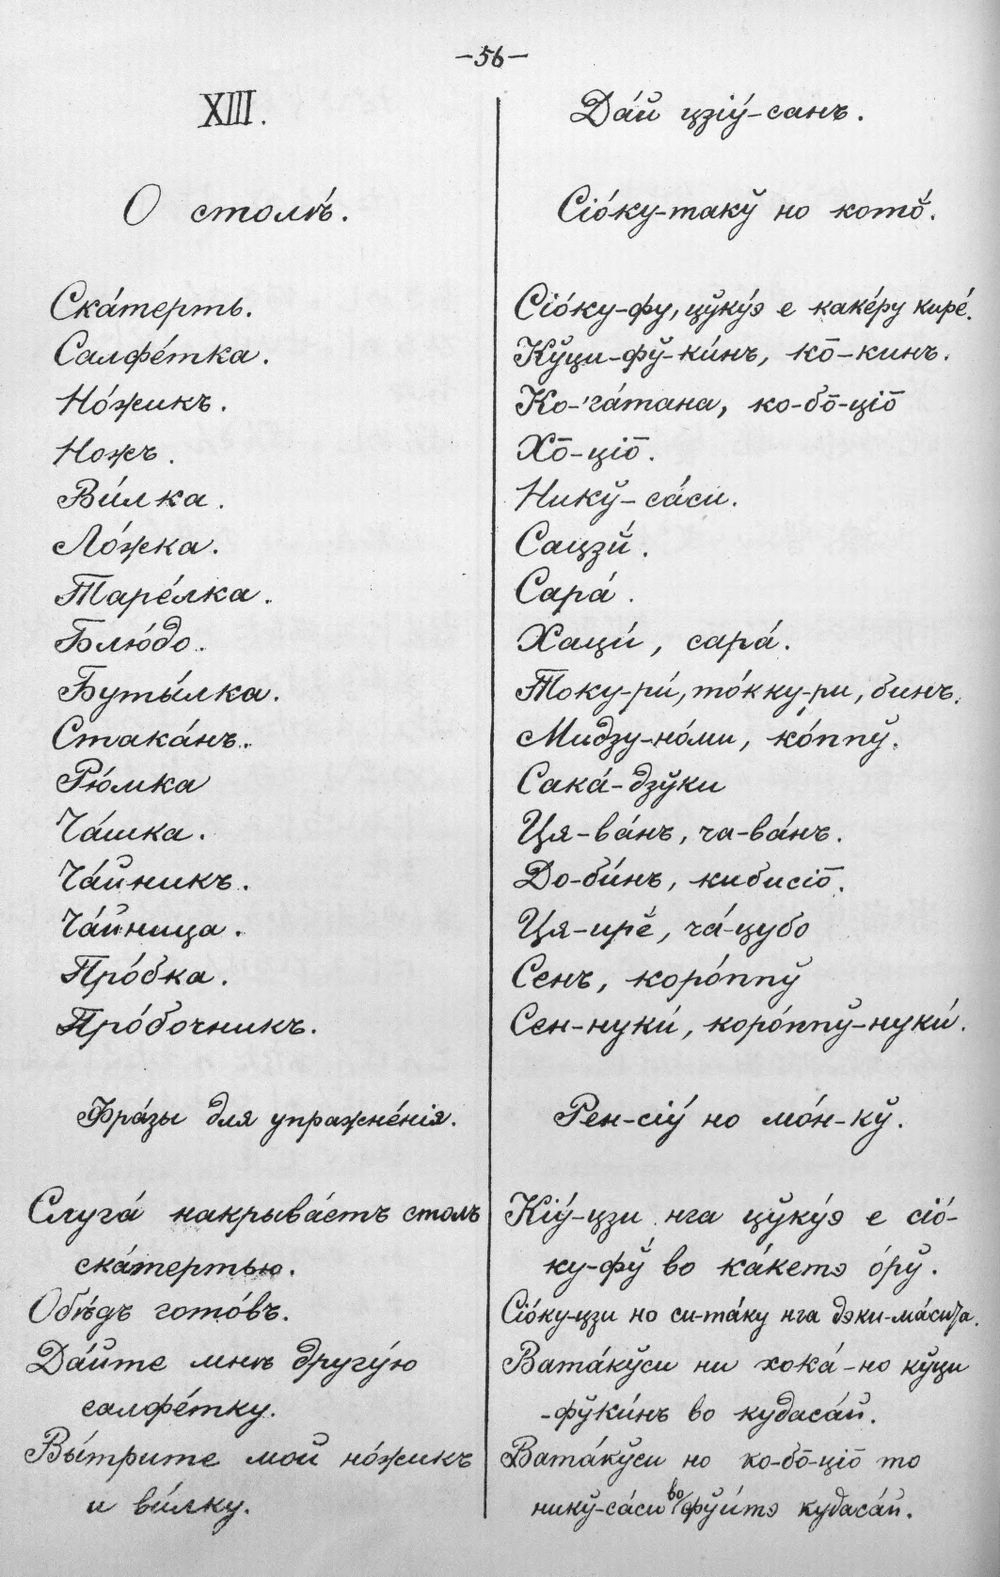 -56-
XIII.
О столѣ́.
Ска́терть.
Салфе́тка.
Но́жикъ.
Ножъ.
Ви́лка.
Ло́жка.
Таре́лка.
Блю́до.
Буты́лка.
Стака́нъ.
Рю́мка
Ча́шка.
Ча́йникъ.
Ча́йница.
Про́бка.
Про́бочникъ.
Фра́зы для упражне́нія.
Слуга́ накрыва́етъ столъ
ска́тертью.
Обѣдъ гото́въ.
Да́йте мнѣ другу́ю
салфе́тку.
Вы́трите мой но́жикъ
и ви́лку.
Да́й цзіу́-санъ.
Сіо́ку-такў но кото̆.
Сіо́ку-фу, цўку́э е каке́ру кире́.
Кўци-фў-ки́нъ, ко̄-кинъ.
Ко-'га́тана, ко-бо̄-ціо̄
Хо̄-ціо̄.
Никў-са́си.
Сацзй.
Сара́.
Хаци́, сара́.
Току-ри́, то́кку-ри, бинъ.
Мидзу-но́ми, ко́ппў.
Сака́-дзўки
Ця-ва́нъ, ча-ва́нъ.
До-би́нъ, кибисіо̄.
Ця-ирӗ, ча́-цубо
Сенъ, коро́ппў
Сен-нуки́, коро́ппў-нуки́.
Рен-сіу́ но мо́н-кў.
Кіу́-цзи нга цўку́э е сіо́-
ку-фў во ка́кетэ о́рў.
Сіо́ку-цзи но си-та́ку нга дэки-ма́сита.
Вата́кўси ни хока́-но кўци
-фўки́нъ во кудаса́й.
Вата́кўси но ко-бо̄-ціо̄ то
никў-са́си во фуи́тэ кудаса́й.